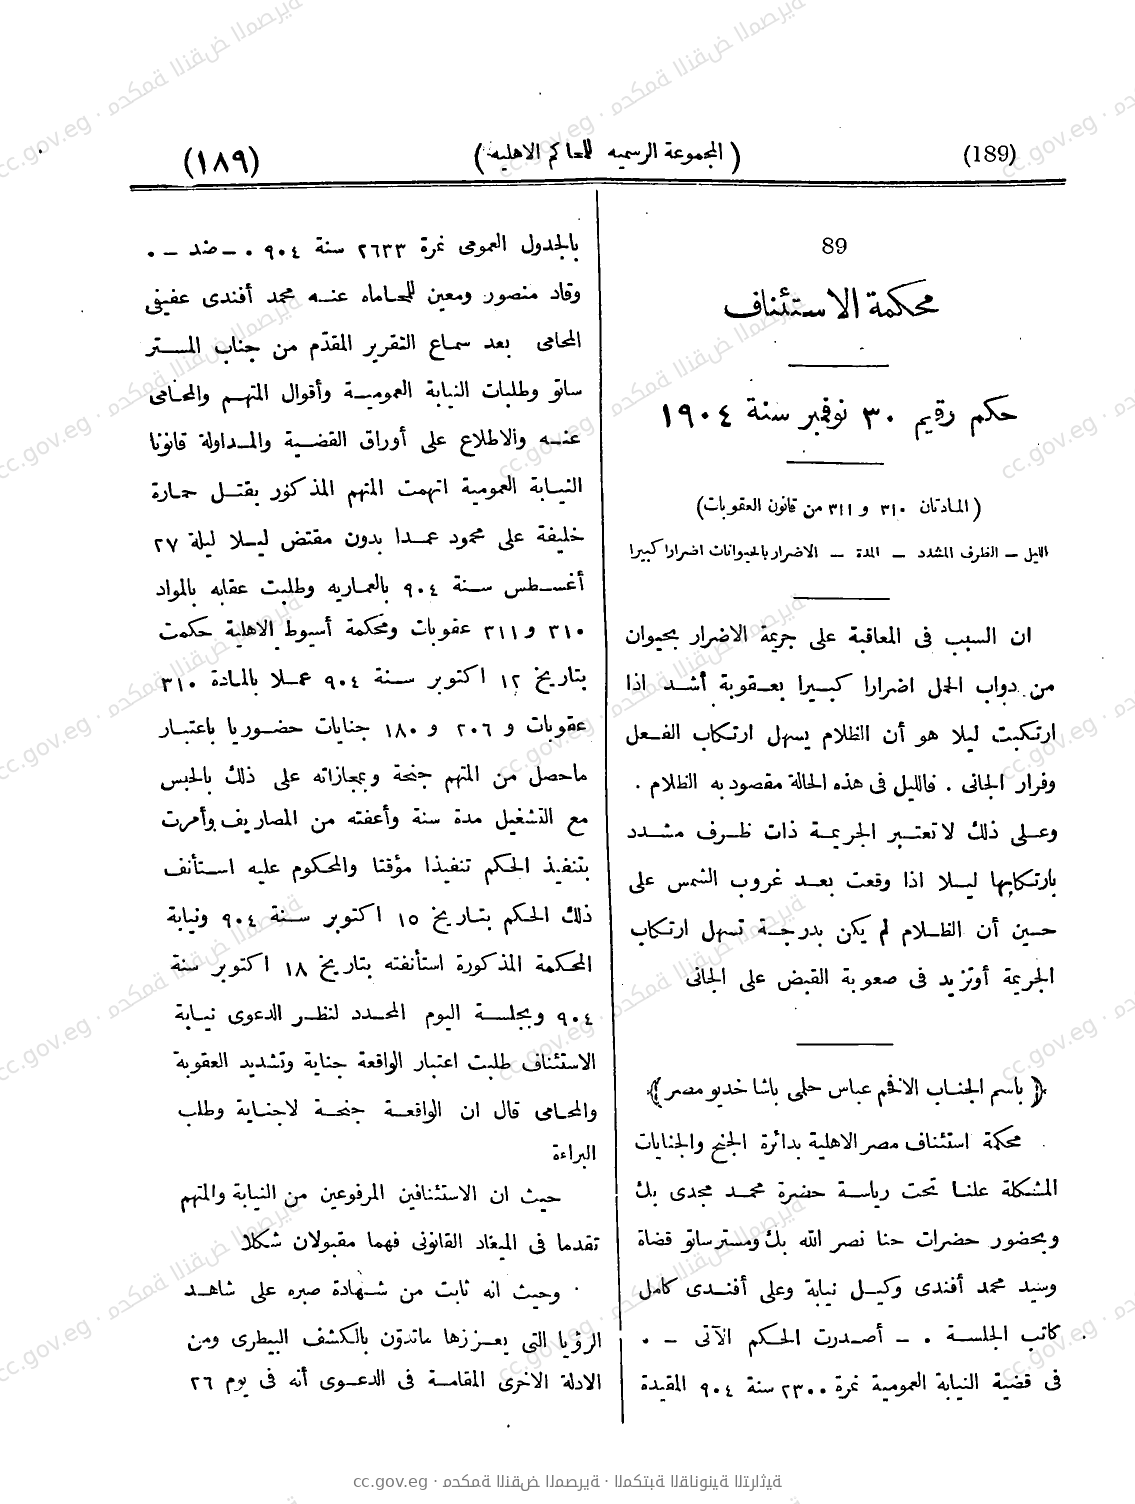 (189)
( المجموعة الرسمية للمحاكم الاهلية )
(١٨٩)
89
محكمة الاستئناف
حكم رقيم ٣٠ نوفمبر سنة ١٩٠٤
( المادتان ٣١٠ و ٣١١ من قانون العقوبات)
الليل – الظرف المشدد – المدة – الاضرار بالحيوانات اضرارا كبيرا
ان السبب فى المعاقبة على جريمة الاضرار بحيوان
من دواب الحمل اضرارا كبيرا بعقوبة أشد اذا
ارتكبت ليلا هو أن الظلام يسهل ارتكاب الفعل
وفرار الجانى . فالليل فى هذه الحالة مقصود به الظلام .
وعلى ذلك لا تعتبر الجريمة ذات ظرف مشدد
بارتكابها ليلا اذا وقعت بعد غروب الشمس على
حين أن الظلام لم يكن بدرجة تسهل ارتكاب
الجريمة أو تزيد فى صعوبة القبض على الجانى
﴿ باسم الجناب الافخم عباس حلمى باشا خديو مصر ﴾
محكمة استئناف مصر الاهلية بدائرة الجنح والجنايات
المشكلة علنا تحت رياسة حضرة محمد مجدى بك
وبحضور حضرات حنا نصر الله بك ومستر ساتو قضاة
وسيد محمد أفندى وكيل نيابة وعلى أفندى كامل
كاتب الجلسة . – أصدرت الحكم الآتى – .
فى قضية النيابة العمومية نمرة ٢٣٠٠ سنة ٩٠٤ المقيدة
بالجدول العمومى نمرة ٢٦٣٣ سنة ٩٠٤ . – ضد – .
وقاد منصور ومعين للمحاماه عنه محمد أفندى عفيفى
المحامى بعد سماع التقرير المقدّم من جناب المستر
ساتو وطلبات النيابة العمومية وأقوال المتهم والمحامى
عنه والاطلاع على أوراق القضية والمداولة قانونا
النيابة العمومية اتهمت المتهم المذكور بقتل حمارة
خليفة على محمود عمدا بدون مقتض ليلا ليلة ٢٧
أغسطس سنة ٩٠٤ بالعماريه وطلبت عقابه بالمواد
٣١٠ و ٣١١ عقوبات ومحكمة أسيوط الاهلية حكمت
بتاريخ ١٢ اكتوبر سنة ٩٠٤ عملا بالمادة ٣١٠
عقوبات و ٢٠٦ و ١٨٠ جنايات حضوريا باعتبار
ماحصل من المتهم جنحة وبمجازاته على ذلك بالحبس
مع التشغيل مدة سنة وأعفته من المصاريف وأمرت
بتنفيذ الحكم تنفيذا مؤقتا والمحكوم عليه استأنف
ذلك الحكم بتاريخ ١٥ اكتوبر سنة ٩٠٤ ونيابة
المحكمة المذكورة استأنفته بتاريخ ١٨ اكتوبر سنة
٩٠٤ وبجلسة اليوم المحدد لنظر الدعوى نيابة
الاستئناف طلبت اعتبار الواقعة جناية وتشديد العقوبة
والمحامى قال ان الواقعة جنحة لاجناية وطلب
البراءة
حيث ان الاستئنافين المرفوعين من النيابة والمتهم
تقدما فى الميعاد القانونى فهما مقبولان شكلا
وحيث انه ثابت من شهادة صبره على شاهد
الرؤيا التى يعززها ماتدوّن بالكشف البيطرى ومن
الادلة الاخرى المقامة فى الدعوى أنه فى يوم ٢٦
cc.gov.eg · محكمة النقض المصرية · المكتبة القانونية التراثية